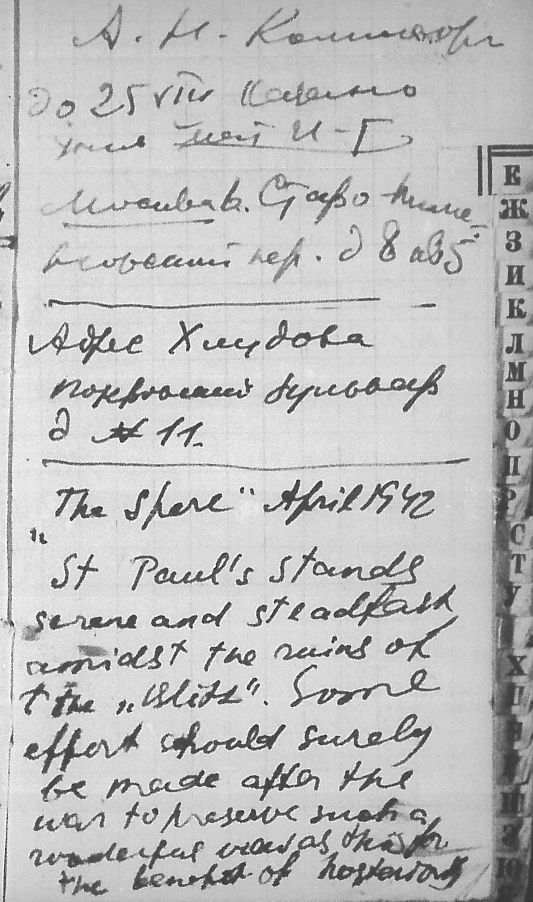 А. Н.
до 25 VIII
Москва. Старо Пиме-
новский пер. д 8 кв 5
Адрес Хлудова
Покровский бульвар
д № 11.
"The Sphere" April 1942
"St Paul's stands
serene and steadfast
amidst the ruins of
t the „Blitz". Some
effort should surely
be made after the
war to preserve such a
wonderful view as this for
the benefit of posterity
Е
Ж
З
И
К
Л
М
Н
О
П
Р
С
Т
У
Х
Ю